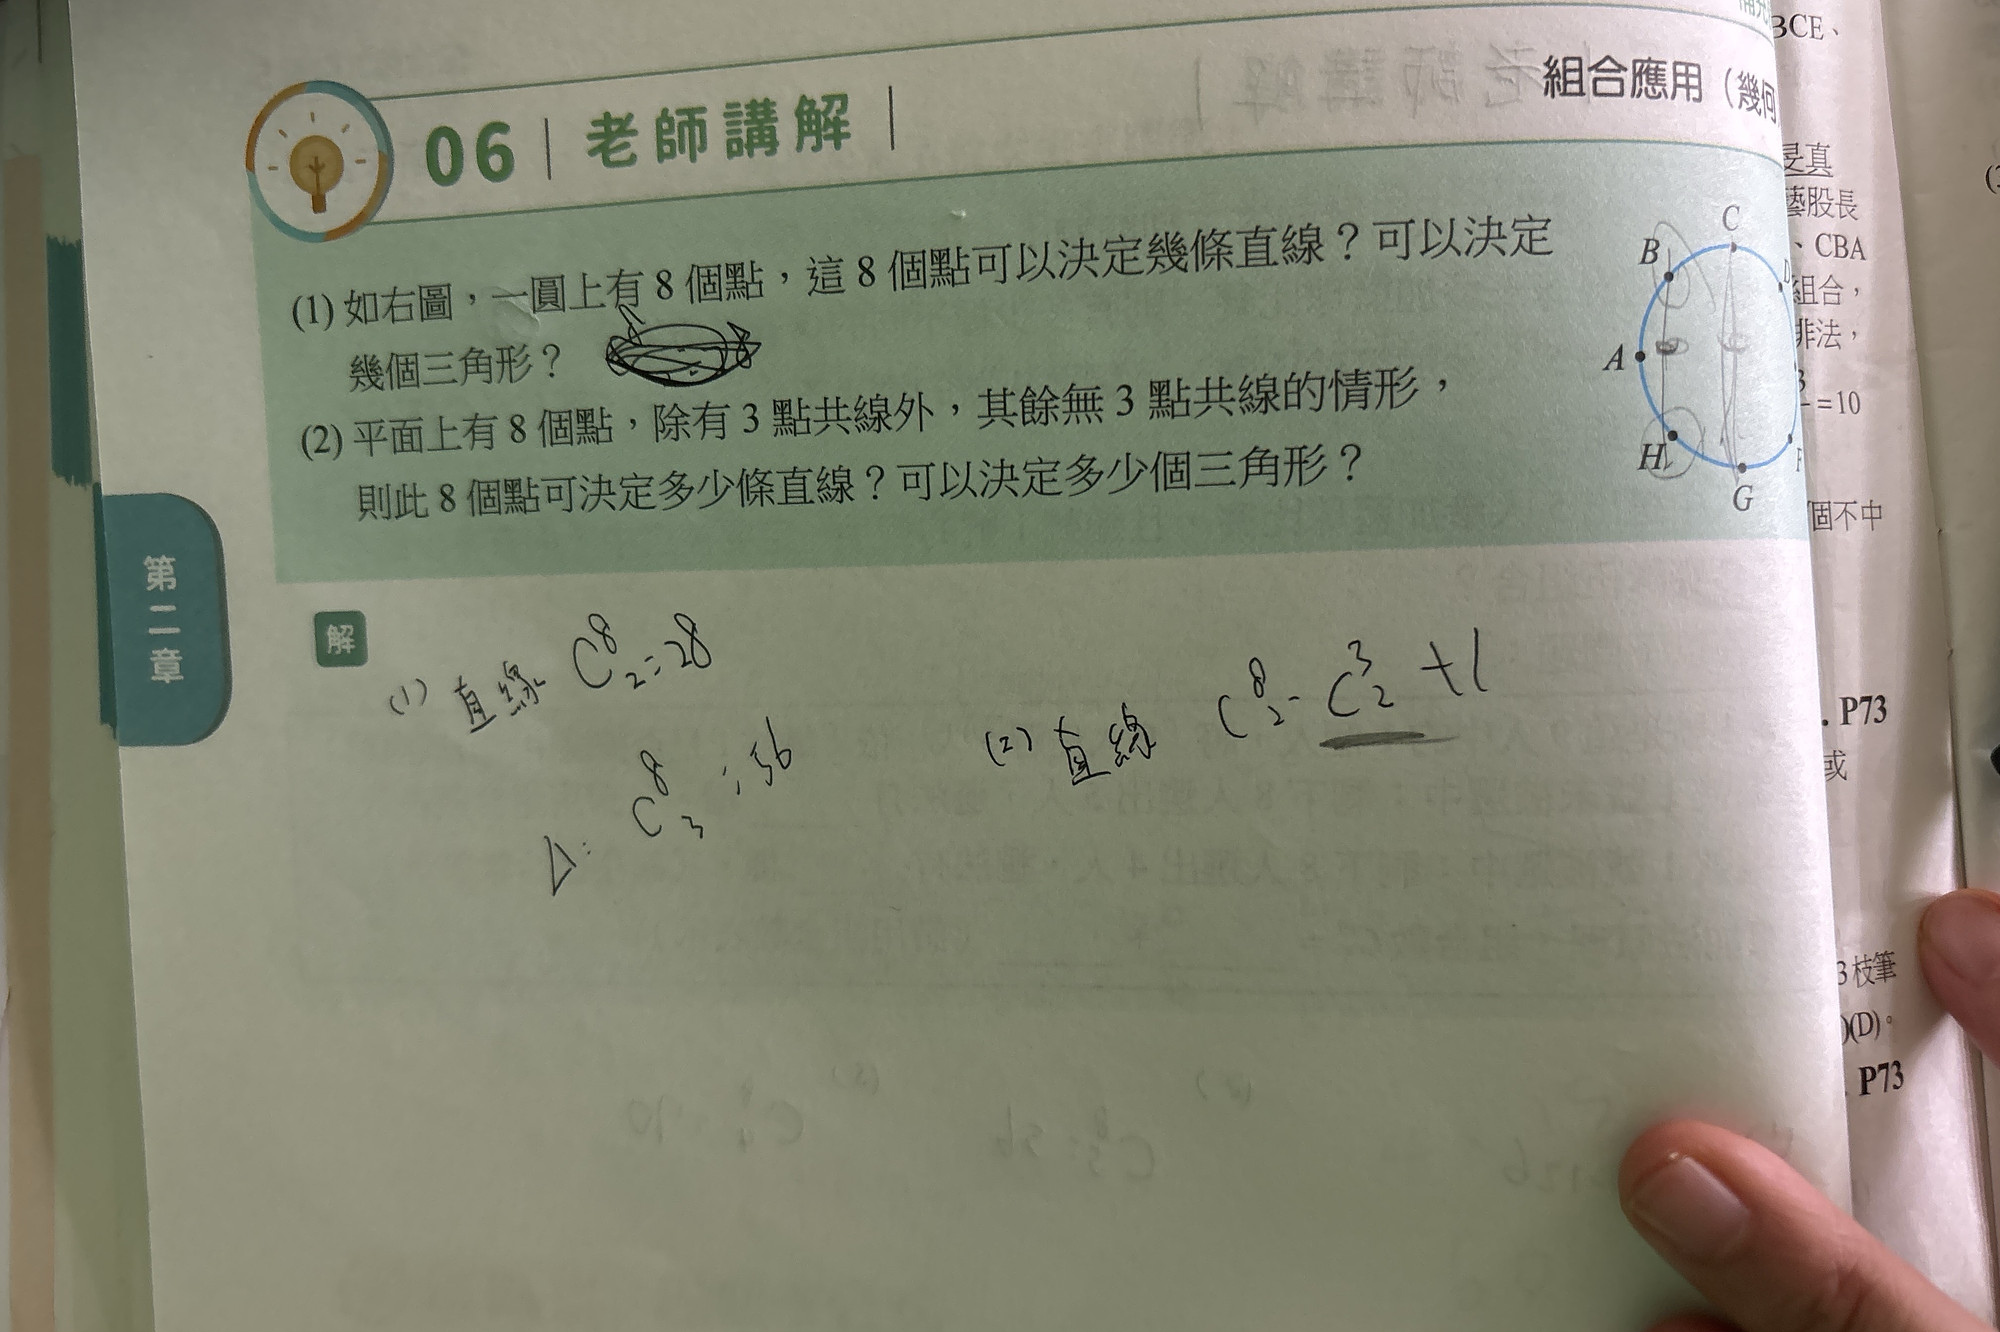 組合應用（幾何
06 | 老師講解 |
(1) 如右圖，一圓上有 8 個點，這 8 個點可以決定幾條直線？可以決定
幾個三角形？
(2) 平面上有 8 個點，除有 3 點共線外，其餘無 3 點共線的情形，
則此 8 個點可決定多少條直線？可以決定多少個三角形？
C
B
D
A
H
G
F
第二章
解
(1) 直線 C⁸₂=28
△: C⁸₃=56
(2) 直線 C⁸₂-C³₂+1
BCE、
旻真
藝股長
、CBA
組合，
非法，
3
=10
個不中
. P73
或
3 枝筆
)(D)。
. P73